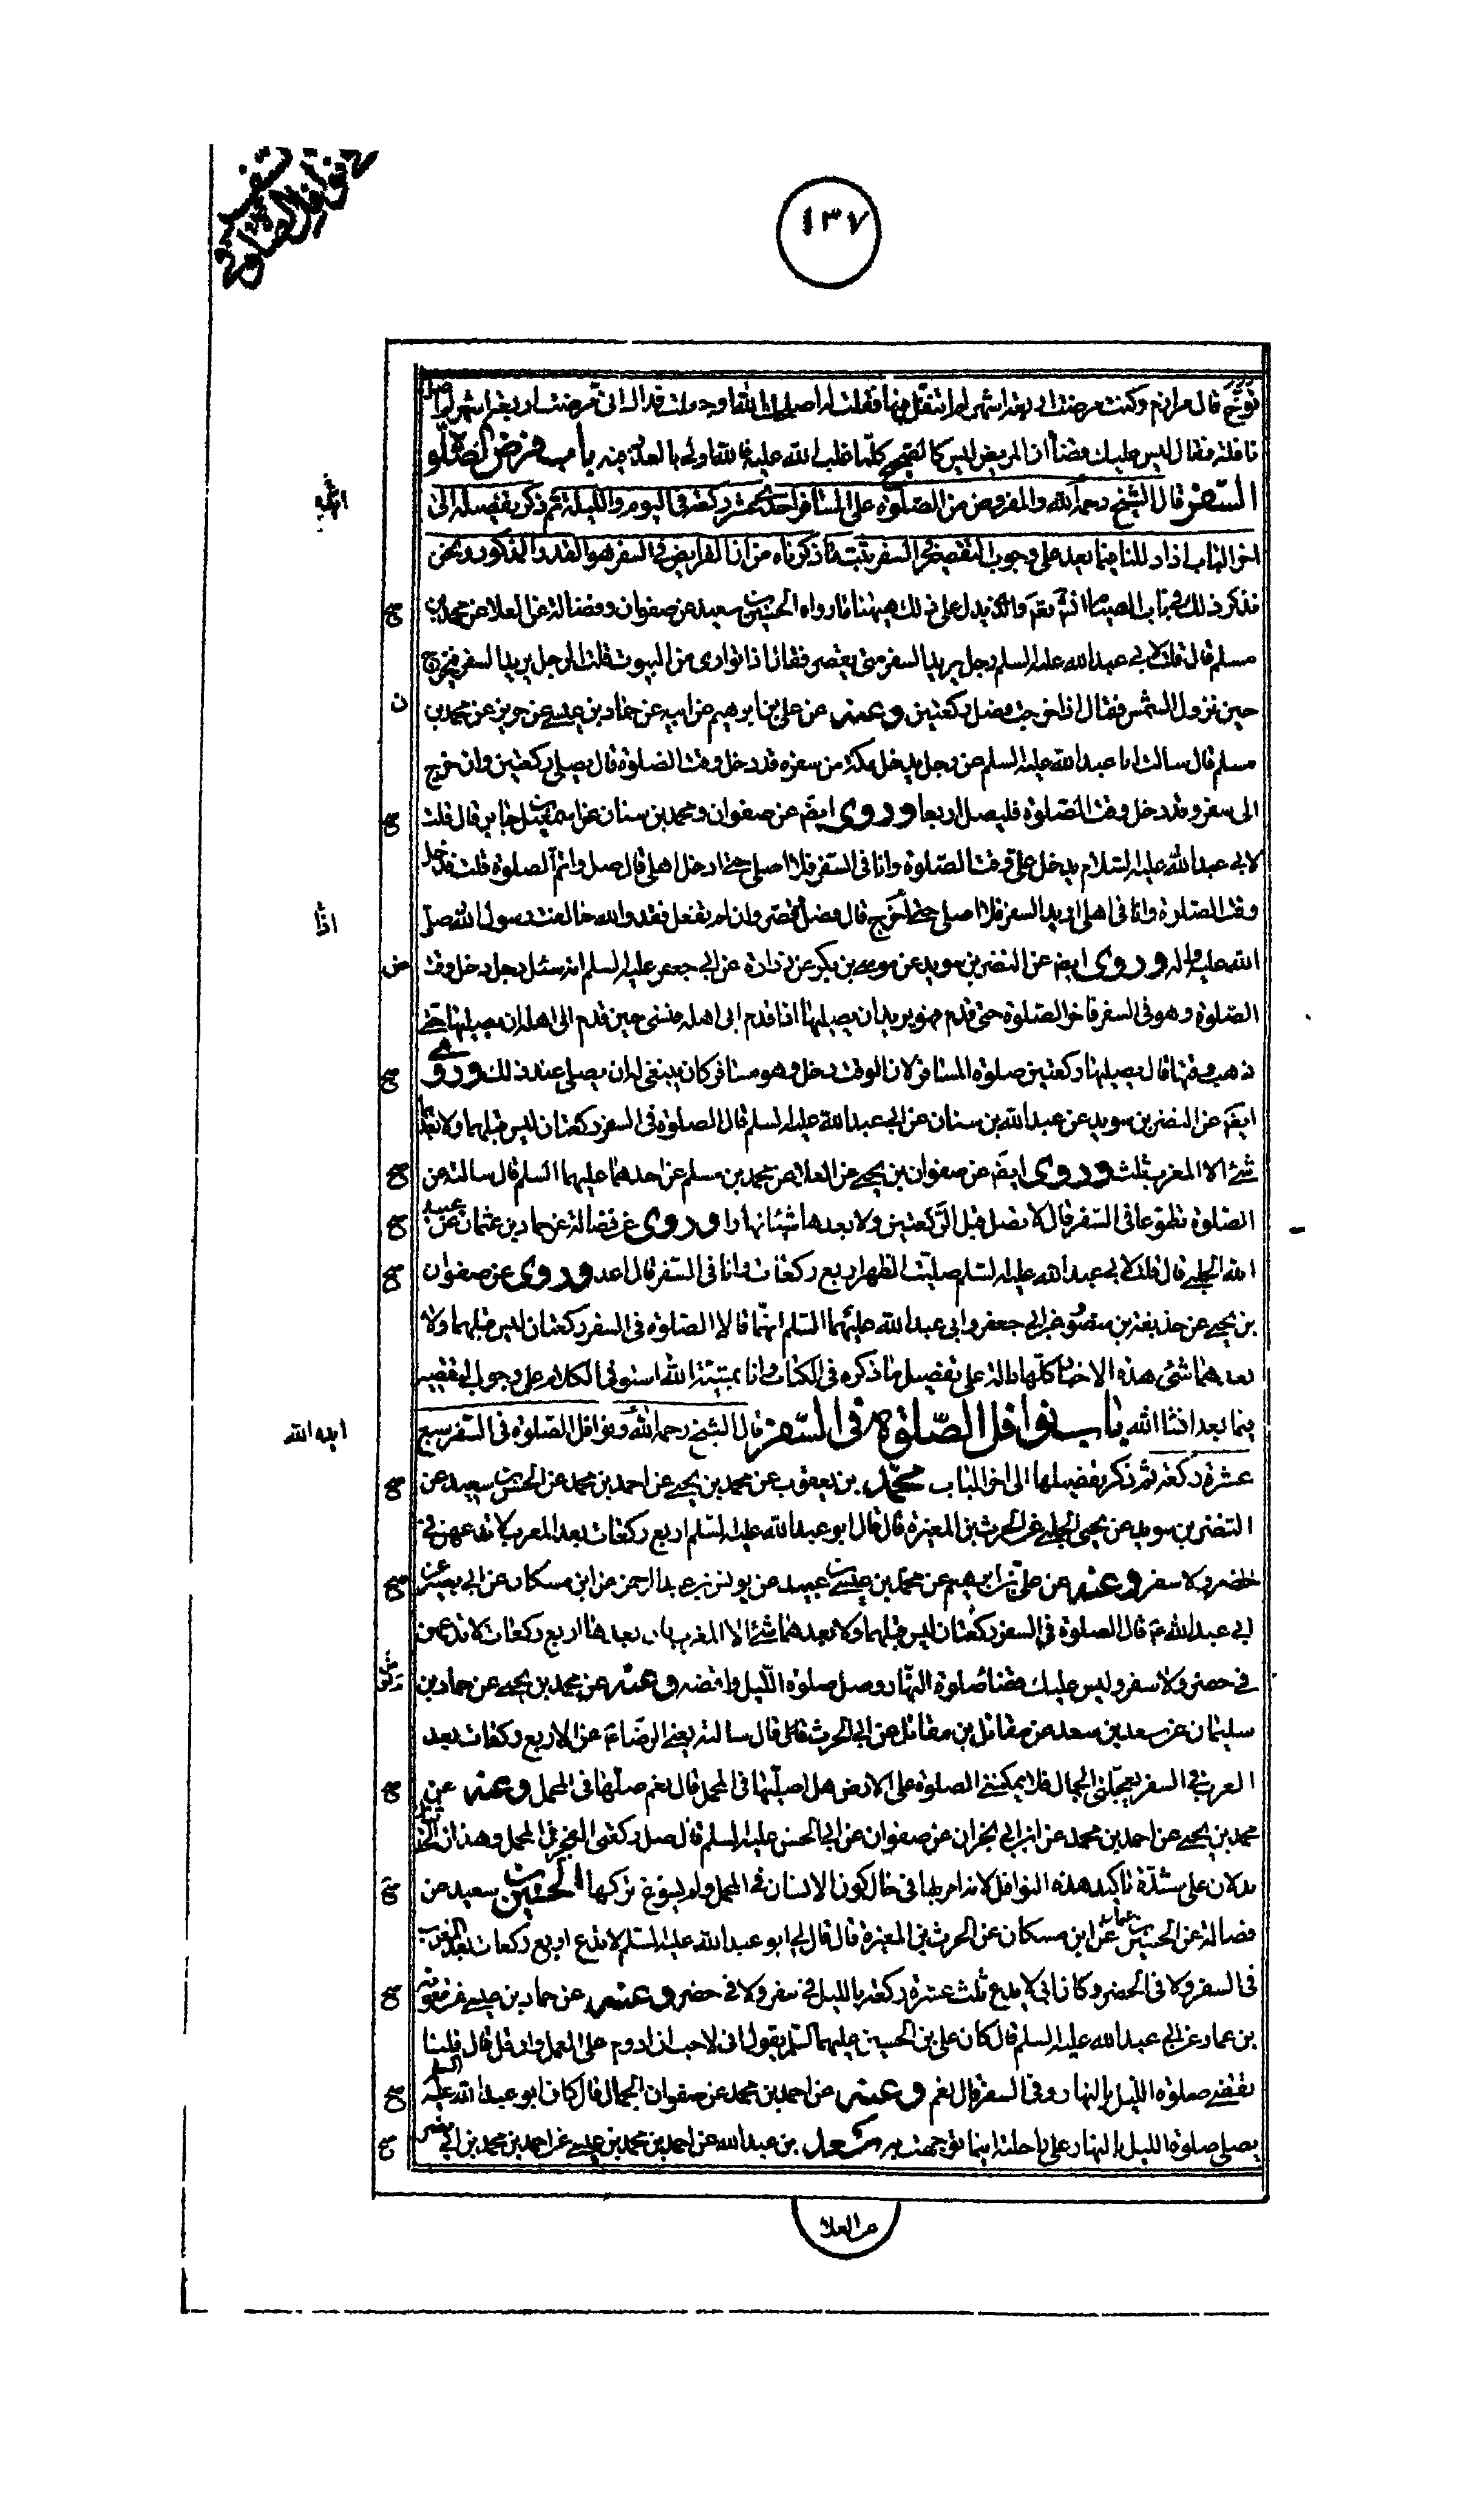 نوافل الصلوة فى السفر
١٣٧
قال مرازم وكنت مرضت اربعة اشهر لم اتنفل فيها فقلت اصلحك الله او جعلت فداك انى مرضت اربعة اشهر لم اصل
نافلة فقال ليس عليك قضاء ان المريض ليس كالصحيح كلما غلب الله عليه فالله اولى بالعذر فيه باب فرض الصلوة
السفر قال الشيخ رحمه الله والمفروض من الصلوة على المسافر احدى عشرة ركعة فى اليوم والليلة ثم ذكر تفصيله الى
اخر الباب اذا دللنا فيما بعد على وجوب التقصير فى السفر ثبت ما ذكرناه من ان الفرايض فى السفر هو القدر المذكور ونحن
نذكر ذلك فى باب الصيام انشاء الله تعالى والذى يدل على ذلك ههنا ما رواه الحسين بن سعيد عن صفوان وفضالة عن العلا عن محمد بن
مسلم قال قلت لابى عبد الله عليه السلم رجل يريد السفر متى يقصر فقال اذا توارى من البيوت قلت الرجل يريد السفر فيخرج
حين تزول الشمس فقال اذا خرجت فصل ركعتين وعنه عن على بن ابرهيم عن ابيه عن حماد بن عيسى عن حريز عن محمد بن
مسلم قال سالت ابا عبد الله عليه السلم عن رجل يدخل مكة من سفره قد دخل وقت الصلوة قال يصلى ركعتين وان خرج
الى سفر وقد دخل وقت الصلوة فليصل اربعا وروى ايضا عن صفوان ومحمد بن سنان عن اسمعيل بن جابر قال قلت
لابى عبد الله عليه السلام يدخل على وقت الصلوة وانا فى السفر فلا اصلى حتى ادخل اهلى قال صل واتم الصلوة قلت فدخل
وقت الصلوة وانا فى اهلى اريد السفر فلا اصلى حتى اخرج قال فصل وقصر وان لم تفعل فقد والله خالفت رسول الله صلى
الله عليه واله وروى ايضا عن النضر بن سويد عن موسى بن بكر عن زرارة عن ابى جعفر عليه السلم انه سئل رجل دخل وقت
الصلوة وهو فى السفر فاخر الصلوة حتى قدم فهو يريد ان يصليها اذا قدم الى اهله فنسى حين قدم الى اهله ان يصليها حتى
ذهب وقتها قال يصليها ركعتين صلوة المسافر لان الوقت دخل وهو مسافر كان ينبغى له ان يصلى عند ذلك وروى
ايضا عن النضر بن سويد عن عبد الله بن سنان عن ابى عبد الله عليه السلم قال الصلوة فى السفر ركعتان ليس قبلهما ولا بعدهما
شئ الا المغرب ثلث وروى ايضا عن صفوان بن يحيى عن العلا عن محمد بن مسلم عن احدهما عليهما السلم قال سالته عن
الصلوة تطوعا فى السفر قال لا تصل قبل الركعتين ولا بعدها شيئا نهارا وروى عن فضالة عن حماد بن عثمان عن عبيد
الله الحلبى قال قلت لابى عبد الله عليه السلم صليت الظهر اربع ركعات وانا فى السفر قال اعد وروى عن صفوان
بن يحيى عن حذيفة بن منصور عن ابى جعفر وابى عبد الله عليهما السلم انهما قالا الصلوة فى السفر ركعتان ليس قبلهما ولا
بعدهما شئ هذه الاخبار كلها دالة على تفصيل ما ذكره فى الكتاب وانا بمشية الله استوفى الكلام على وجوب التقصير
فيما بعد انشا الله باب نوافل الصلوة فى السفر قال الشيخ رحمه الله ونوافل الصلوة فى السفر سبع
عشرة ركعة ثم ذكر تفصيلها الى اخر الباب محمد بن يعقوب عن محمد بن يحيى عن احمد بن محمد عن الحسين بن سعيد عن
النضر بن سويد عن يحيى الحلبى عن الحرث بن المغيرة قال قال ابو عبد الله عليه السلم اربع ركعات بعد المغرب لا تدعهن فى
حضر ولا سفر وعنه عن على بن ابرهيم عن محمد بن عيسى بن عبيد عن يونس بن عبد الرحمن عن ابن مسكان عن ابى بصير عن
ابى عبد الله ع قال الصلوة فى السفر ركعتان ليس قبلهما ولا بعدهما شئ الا المغرب فان بعدها اربع ركعات لا تدعهن
فى حضر ولا سفر وليس عليك قضاء صلوة النهار وصل صلوة الليل واقضه وعنه عن محمد بن يحيى عن حماد بن
سليمان عن سعد بن سعد عن مقاتل بن مقاتل عن ابى الحرث قال سالته يعنى الرضا ع عن الاربع ركعات بعد
المغرب فى السفر يعجلنى الجمال فلا يمكننى الصلوة على الارض هل اصليها فى المحمل قال نعم صلها فى المحمل وعنه عن
محمد بن يحيى عن احمد بن محمد عن ابن ابى نجران عن صفوان عن ابى الحسن عليه السلم قال صل ركعتى الفجر فى المحمل وهذان الخبران
يدلان على شدة تاكيد هذه النوافل لانه امر بها فى حال كون الانسان فى المحمل ولم يسوغ تركها الحسين بن سعيد عن
فضالة عن الحسين بن عثمان عن ابن مسكان عن الحرث بن المغيرة قال قال لى ابو عبد الله عليه السلم لا تدع اربع ركعات بعد المغرب
فى السفر ولا فى الحضر وكان ابى لا يدع ثلث عشرة ركعة بالليل فى سفر ولا فى حضر وعنه عن حماد بن عيسى عن معوية
بن عمار عن ابى عبد الله عليه السلم قال كان على بن الحسين عليهما السلم يقول انى لاحب ان ادوم على العمل وان قل قال قلنا
نقضى صلوة الليل بالنهار وفى السفر قال نعم وعنه عن احمد بن محمد عن صفوان الجمال قال كان ابو عبد الله عليه السلم
يصلى صلوة الليل بالنهار على راحلته اينما توجهت به سعد بن عبد الله عن احمد بن محمد بن عيسى عن احمد بن محمد بن ابى نصر
ايده الله
عن العلا